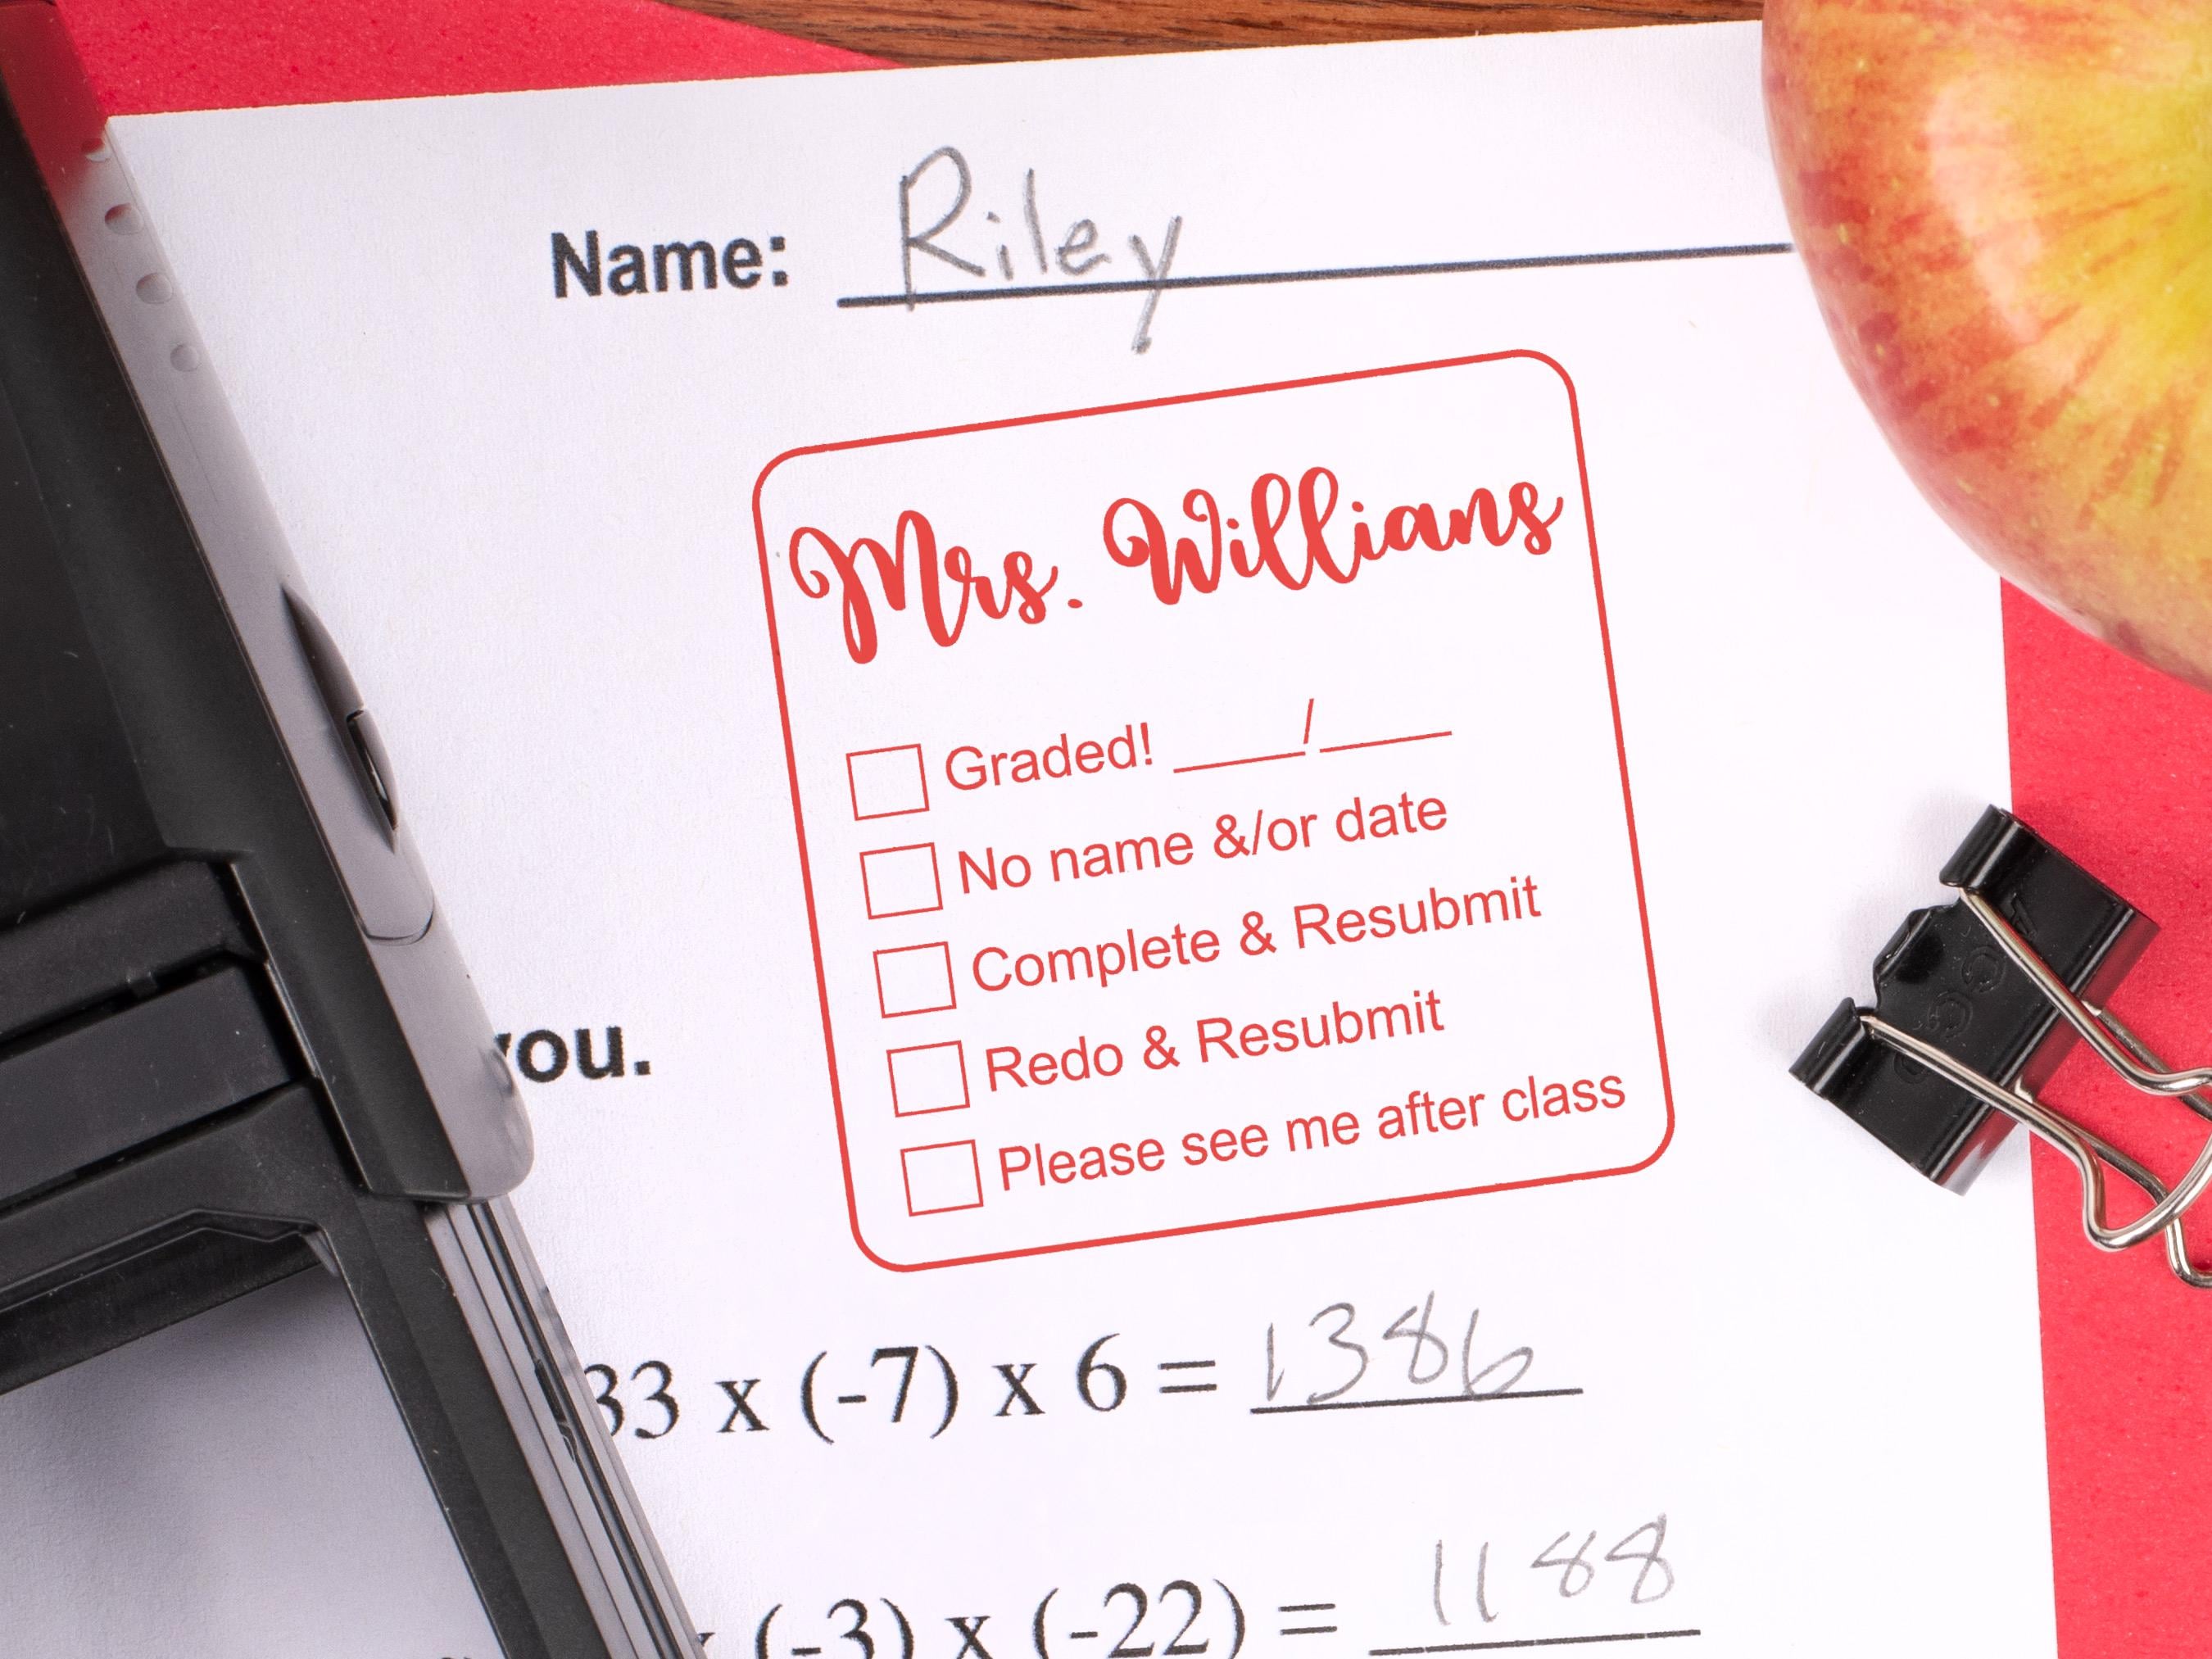 Name: Riley
Mrs. Willians
Graded! ____/____
No name &/or date
Complete & Resubmit
Redo & Resubmit
Please see me after class
you.
33 x (-7) x 6 = 1386
(-3) x (-22) = 1188